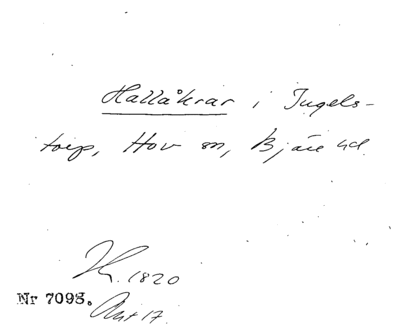 Hallåkrar i Ingels-
torp, Hov sn, Bjäre hd.
1820
Nr 7098. Akt 17